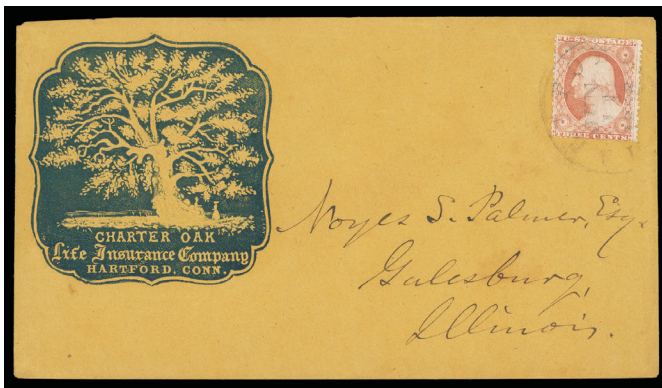 CHARTER OAK
Life Insurance Company
HARTFORD, CONN.
U.S. POSTAGE
THREE CENTS
Noyes S. Palmer, Esq.
Galesburg,
Illinois.